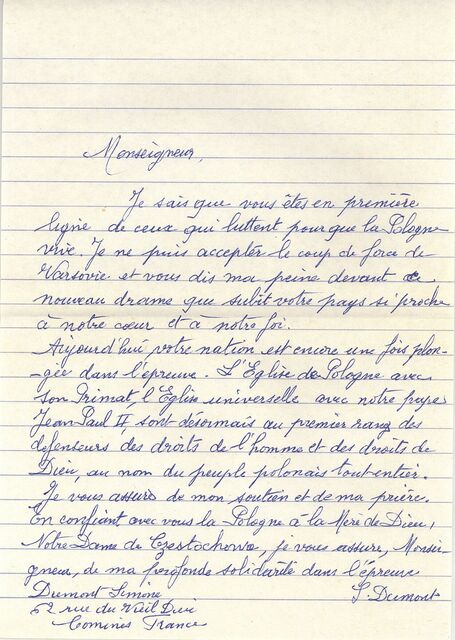 Monseigneur,
Je sais que vous êtes en première
ligne de ceux qui luttent pour que la Pologne
vive. Je ne puis accepter le coup de force de
Varsovie et vous dis ma peine devant ce
nouveau drame que subit votre pays si proche
à notre cœur et à notre foi.
Aujourd'hui votre nation est encore une fois plon-
-gée dans l'épreuve. L'Eglise de Pologne avec
son Primat, l'Eglise universelle avec notre pape
Jean Paul II, sont désormais au premier rang des
défenseurs des droits de l'homme et des droits de
Dieu, au nom du peuple polonais tout entier.
Je vous assure de mon soutien et de ma prière.
En confiant avec vous la Pologne à la Mère de Dieu,
Notre Dame de Czestochowa, je vous assure, Monsei-
gneur, de ma profonde solidarité dans l'épreuve
Dumont Simone S. Dumont
62 rue du Vieil Dieu
Comines France